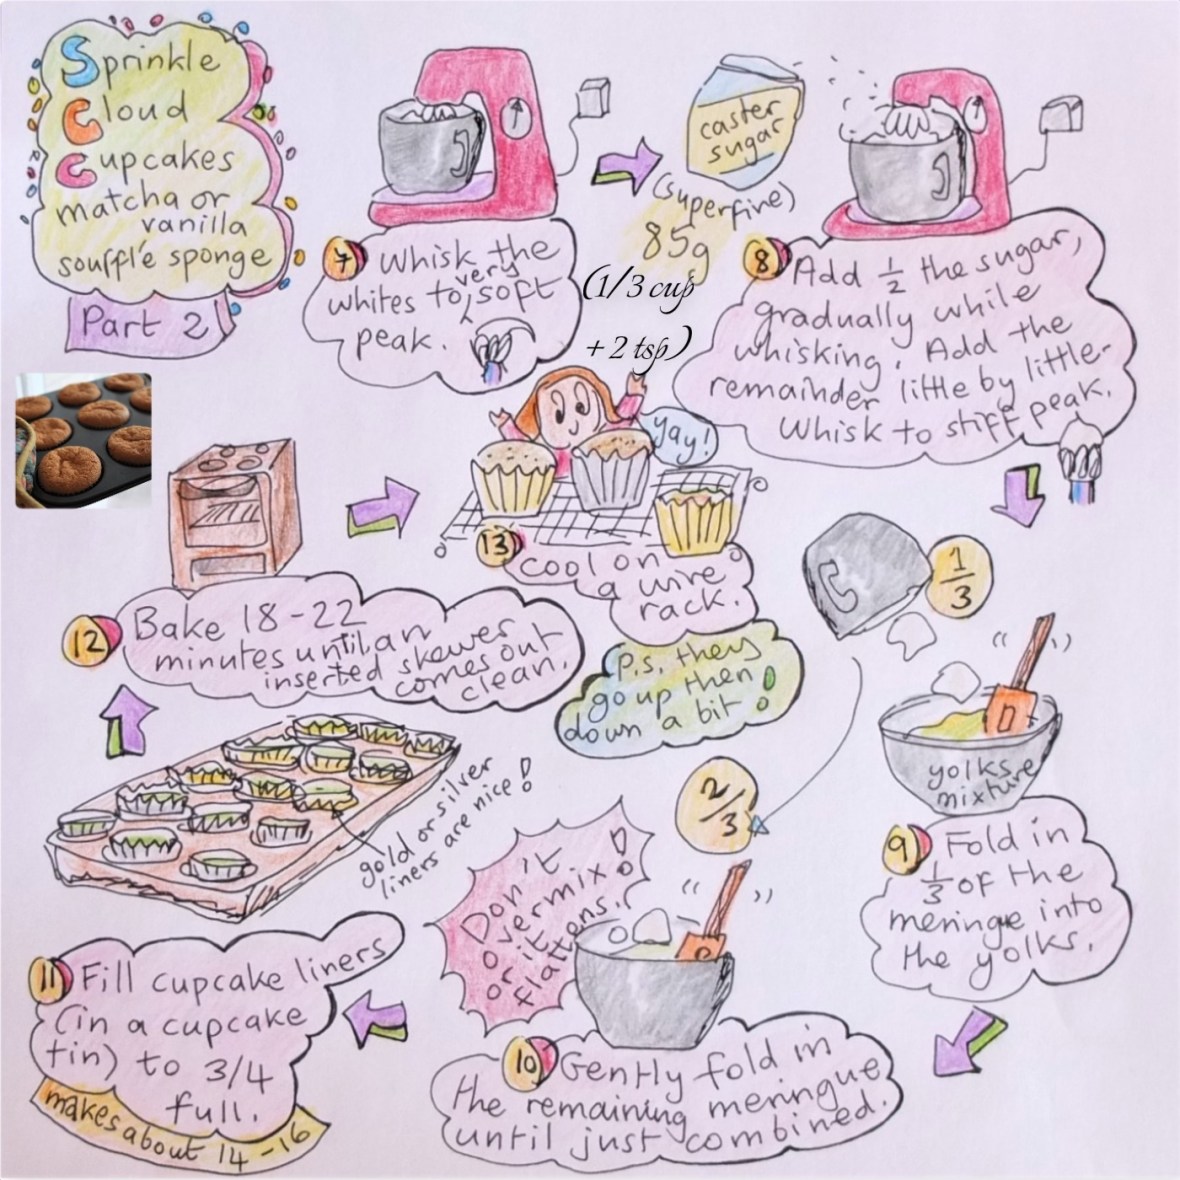 Sprinkle
Cloud
Cupcakes
matcha or
vanilla
soufflé sponge
Part 2
7 Whisk the
very
whites to soft
peak.
caster
sugar
(superfine)
85g
(1/3 cup
+ 2 tsp)
8 Add 1/2 the sugar,
gradually while
whisking. Add the
remainder little by little.
Whisk to stiff peak.
1/3
yolks
mixture
9 Fold in
1/3 of the
meringe into
the yolks.
2/3
Don't
overmix!
or it
flattens.
10 Gently fold in
the remaining meringue
until just combined.
11 Fill cupcake liners
(in a cupcake
tin) to 3/4
full.
makes about 14-16
gold or silver
liners are nice!
12 Bake 18-22
minutes until an
inserted skewer
comes out
clean.
yay!
13 cool on
a wire
rack.
P.S. they
go up then
down a bit!